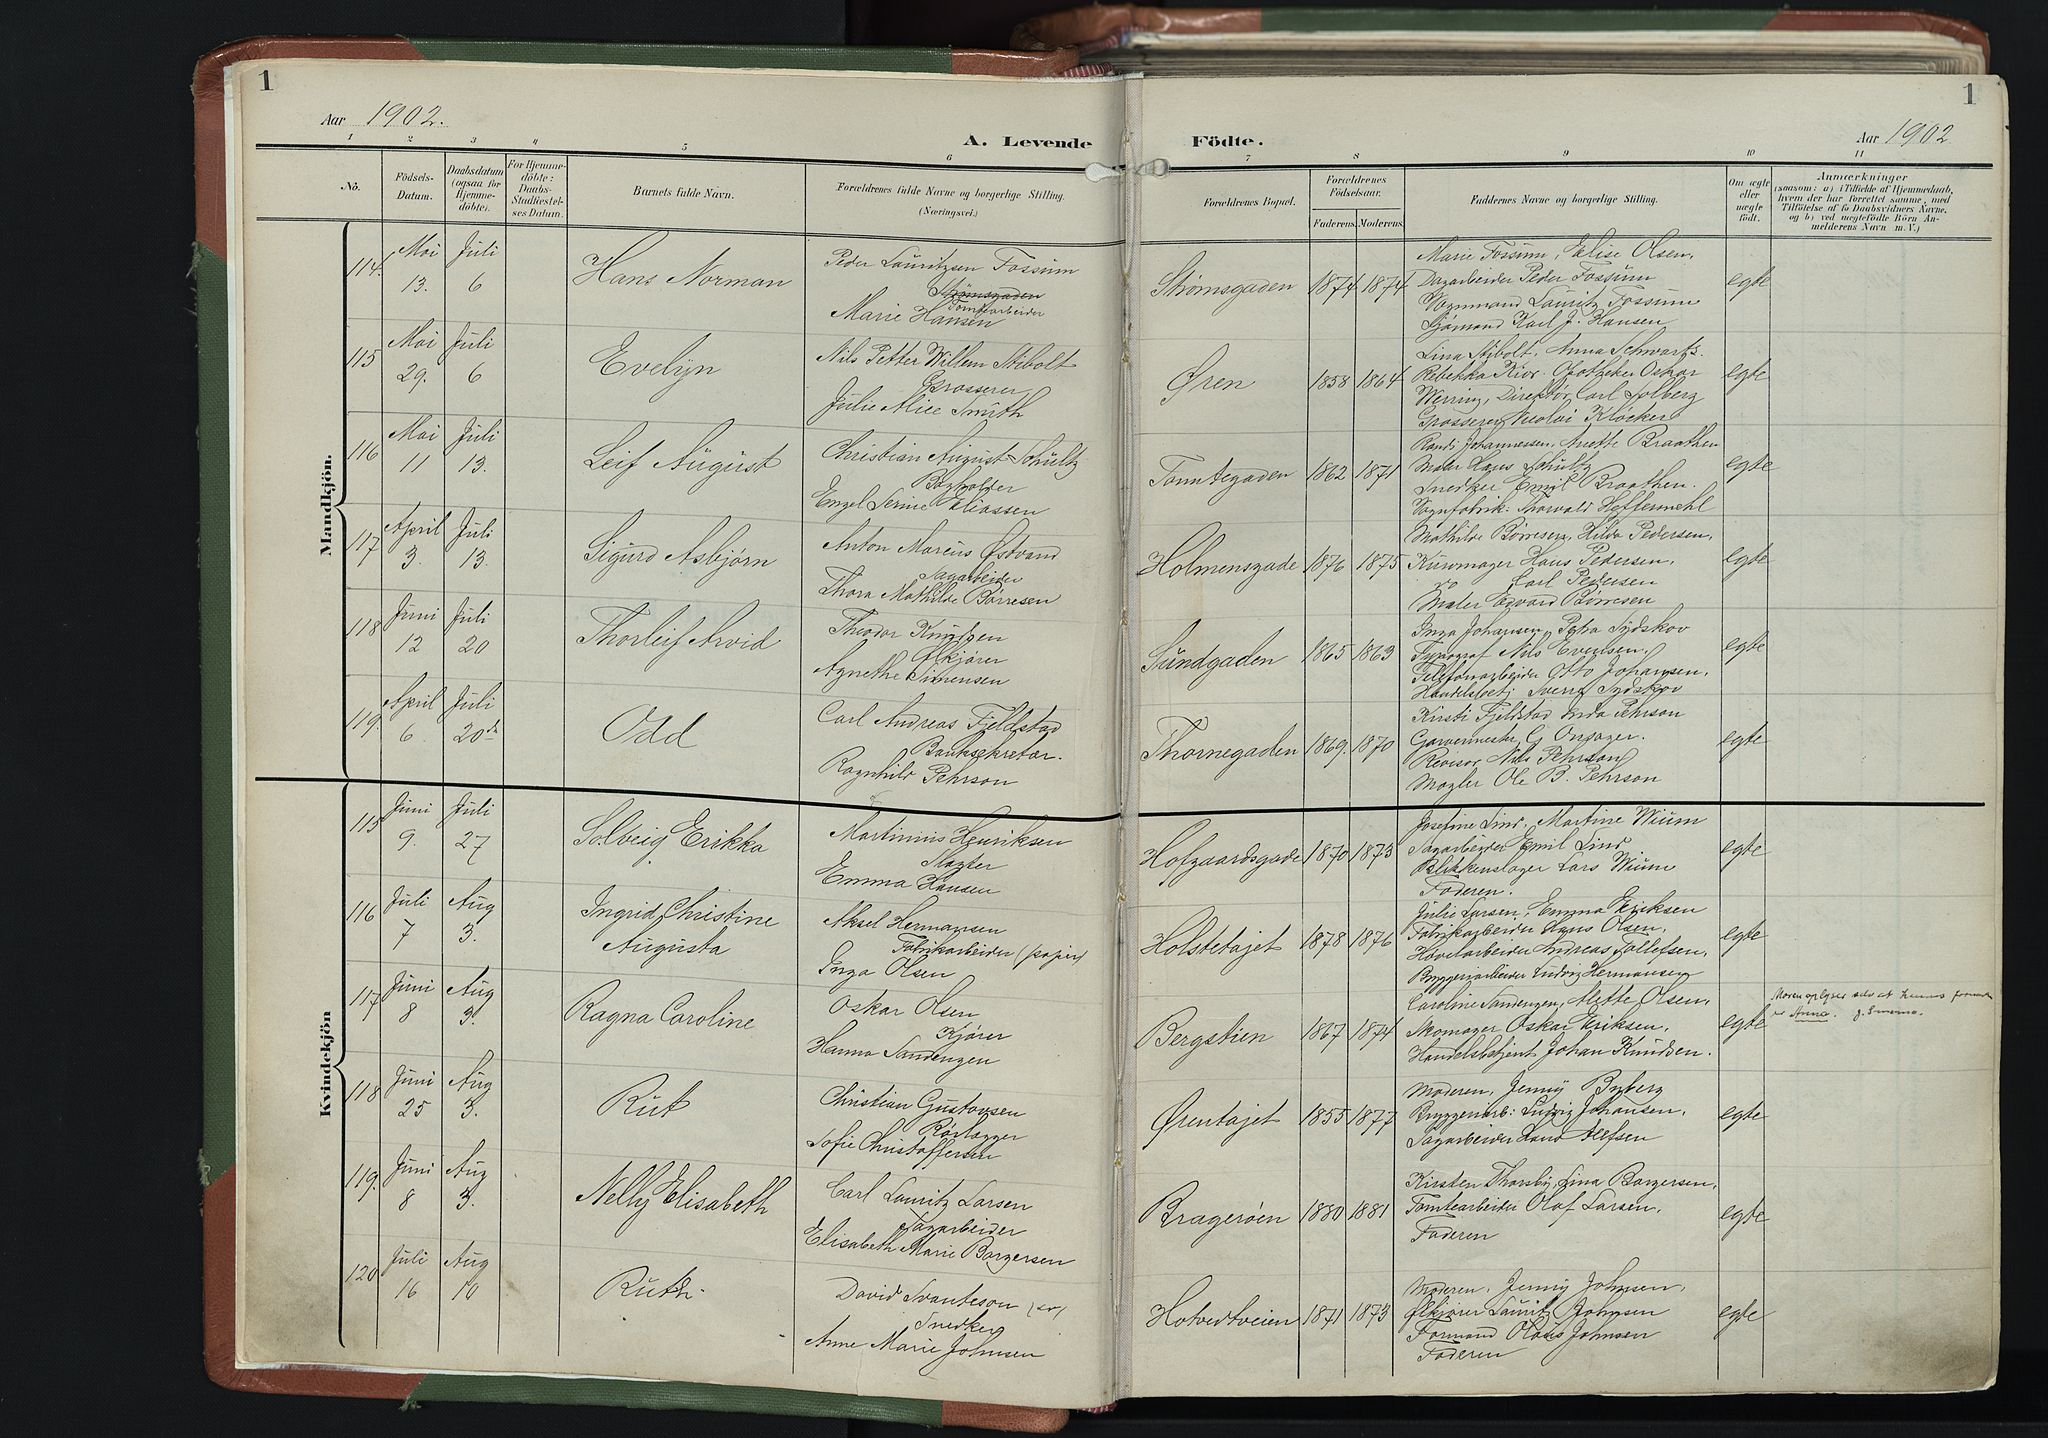 1
1
Aar 1902.
A. Levende Födte.
Aar 1902
1 2 3 4 5 6 7 8 9 10 11
No.
Födsels-
Datum.
Daabsdatum
(ogsaa for
Hjemme-
döbte).
For Hjemme-
döbte:
Daabs-
Stadfæstel-
ses Datum.
Barnets fulde Navn.
Forældrenes fulde Navne og borgerlige Stilling.
(Næringsvei.)
Forældrenes Bopæl.
Forældrenes
Födselsaar.
Faderens. Moderens.
Faddernes Navne og borgerlige Stilling.
Om ægte
eller
uægte
født.
Anmærkninger
(saasom: a) i Tilfælde af Hjemmedaab,
hvem der har forrettet samme, med
Tilföielse af to Daabsvidners Navne,
og b) ved uægtefødte Börn An-
melderens Navn m. V.)
Mandkjön.
114. Mai 13. Juli 6
Hans Norman
Peder Lauritzsen Fossum
Strømsgaden
Tomtearbeider
Marie Hansen
Strømsgaden 1874 1874
Marie Fossum, Elise Olsen,
Dagarbeider Peder Fossum
Vognmand Lauritz Fossum
Sjømand Karl J. Hansen
egte
115 Mai 29. Juli 6
Evelyn
Nils Petter Willem Stibolt
Grosserer
Julie Alice Smith
Øren 1858 1864
Lina Stibolt, Anna Schwartz.
Rebekka Kiør. Apotheker Oskar
Werring, Direktör Carl Solberg
Grosserer Nicolai Kløcker
egte
116 Mai 11 Juli 13.
Leif August
Christian August Schultz
Bogholder
Engel Serine Eliassen
Tomtegaden 1862 1871
Randi Johannessen, Anette Braathen
Maler Hans Schultz
Snedker Emil Braathen.
Vognfabrik. Thorvald Heffermehl
egte
117 April 3. Juli 13.
Sigurd Asbjørn
Anton Marius Østvand
Sagarbeider
Thora Mathilde Børresen
Holmensgade 1876 1875
Mathilde Børresen, Hilda Pedersen,
Kurvmager Hans Pedersen,
do Carl Pedersen
Maler Edvard Børresen
egte
118 Juni 12 Juli 20
Thorleif Arvid
Theodor Knudsen
Ølkjører
Agnethe Simensen
Sundgaden 1865 1863
Inga Johansen, Petra Sydskov
Typograf Nils Evensen.
Telefonarbeider Otto Johansen,
Handelsbetj Sverre Sydskov
egte
119. April 6 Juli 20de
Odd
Carl Andreas Fjeldstad
Banksekretær.
Ragnhild Pehrson
Thornegaden 1869. 1870
Kirsti Fjeldstad Inda Pehrson
Garvermester G. Onsager.
Revisor Nils Pehrson
Mægler Ole B. Pehrson
egte
Kvindekjön
115 Juni 9. Juli 27
Solveig Erikka
Martinius Henriksen
Slagter
Emma Hansen
Hofgaardsgade 1870 1873
Josefine Lind, Martine Wium
Sagarbeider Emil Lind
Blikkenslager Lars Wium
Faderen.
egte
116 Juli 7 Aug 3.
Ingrid Christine
Augusta
Aksel Hermansen
Fabrikarbeider (papir)
Inga Olsen
Holstetøjet 1878 1876
Julie Larsen, Emma Eriksen
Fabrikarbeider Hans Olsen,
Høvelarbeider Andreas Tollefsen,
Bryggeriarbeider Ludvig Hermansen
egte
117 Juni 8 Aug 3.
Ragna Caroline
Oskar Olsen
Kjører
Hanna Sandengen
Bergstien 1867 1874
Caroline Sandengen, Alette Olsen,
Skomager Oskar Eriksen,
Handelsbetjent Johan Knudsen.
egte
Moren oplyser selv at hennes fornavn
er Anna.
118 Juni 25 Aug 3.
Rut
Christian Gustavsen
Rørlægger
Sofie Christoffersen
Ørentøjet 1855 1877
Moderen, Jenny Byberg
Bryggeriarb: Ludvig Johansen,
Sagarbeider Hans Alefsen
egte
119. Juni 8 Aug 3.
Nelly Elisabeth
Carl Lauritz Larsen
Sagarbeider
Elisabeth Marie Borgersen
Bragerøen 1880 1881
Kirsten Thorsby, Lina Borgersen,
Tomtearbeider Olaf Larsen,
Faderen
egte
120 Juli 16 Aug 10
Ruth.
David Svanteson (sv)
Snedker
Anne Marie Johnsen
Hotvedtveien 1871 1873
Moderen, Jenny Johnsen,
Ølkjører Lauritz Johnsen
Formand Olaus Johnsen
Faderen
egte